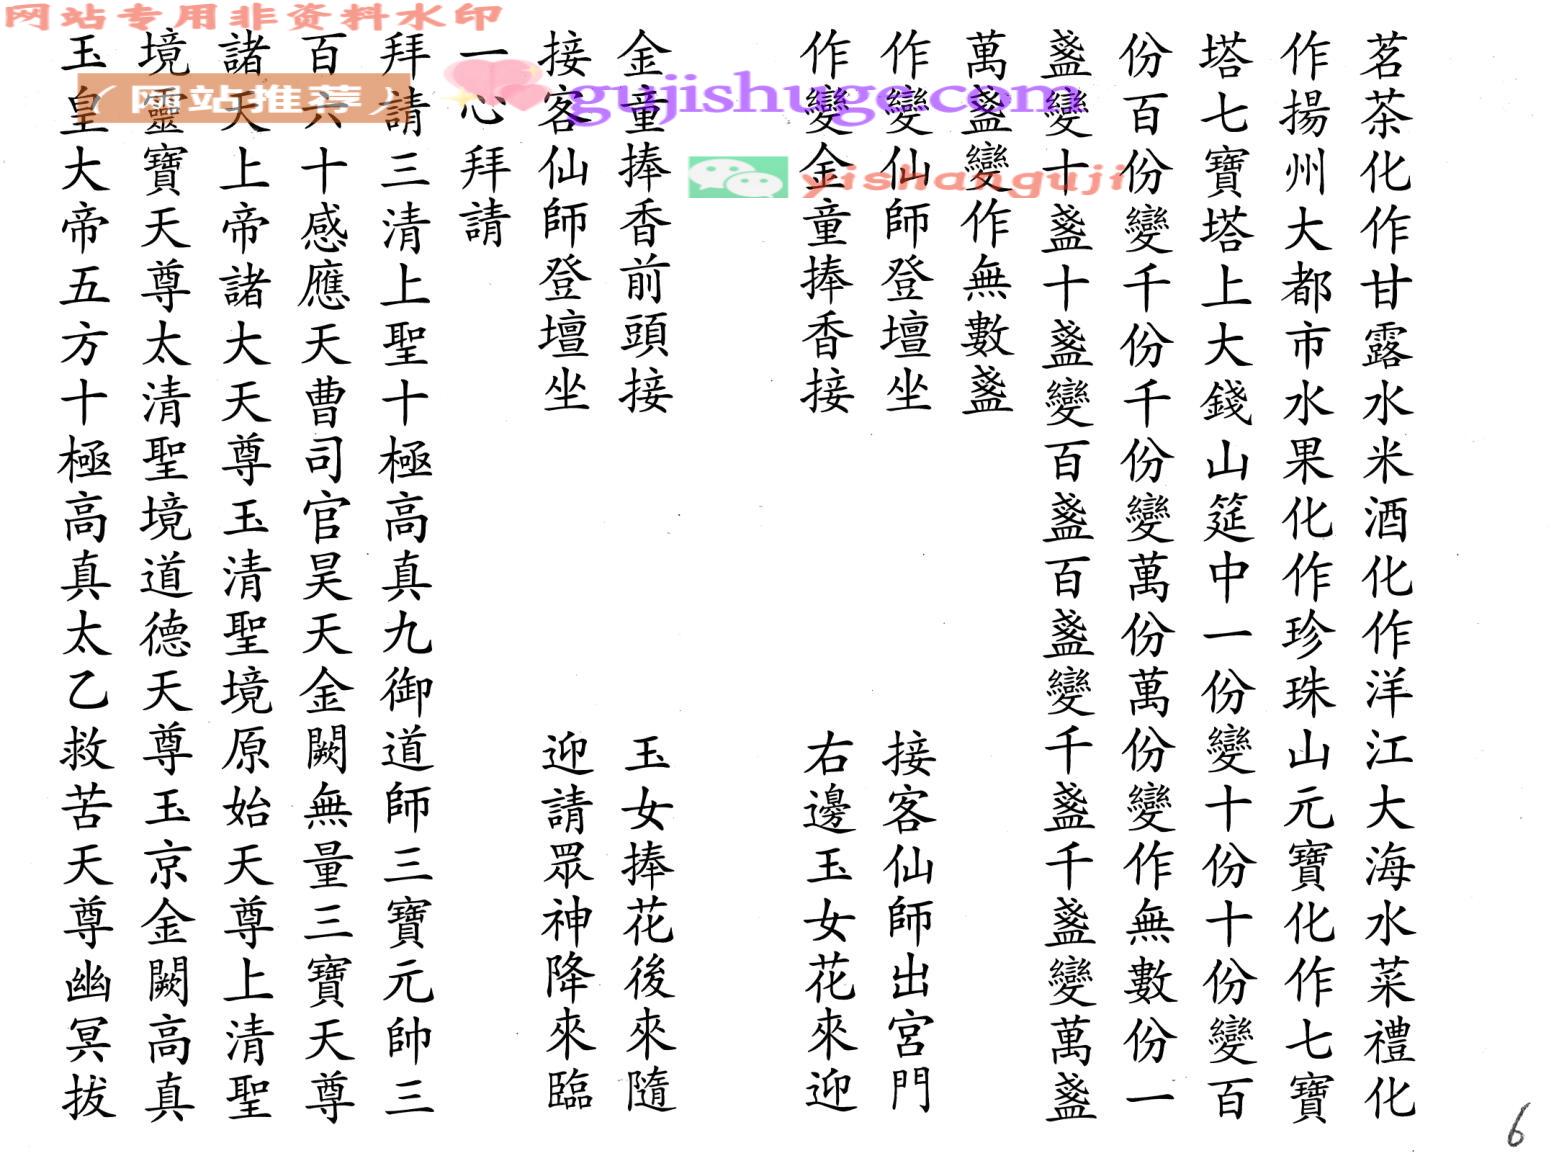 茗茶化作甘露水米酒化作洋江大海水菜禮化
作揚州大都市水果化作珍珠山元寶化作七寶
塔七寶塔上大錢山筵中一份變十份十份變百
份百份變千份千份變萬份萬份變作無數份一
盞變十盞十盞變百盞百盞變千盞千盞變萬盞
萬盞變作無數盞
作變仙師登壇坐 接客仙師出宮門
作變金童捧香接 右邊玉女花來迎
金童捧香前頭接 玉女捧花後來隨
接客仙師登壇坐 迎請眾神降來臨
一心拜請
拜請三清上聖十極高真九御道師三寶元帥三
百六十感應天曹司官昊天金闕無量三寶天尊
諸天上帝諸大天尊玉清聖境原始天尊上清聖
境靈寶天尊太清聖境道德天尊玉京金闕高真
玉皇大帝五方十極高真太乙救苦天尊幽冥拔
6
网站专用非资料水印
(网站推荐)
gujishuge.com
yishanguji